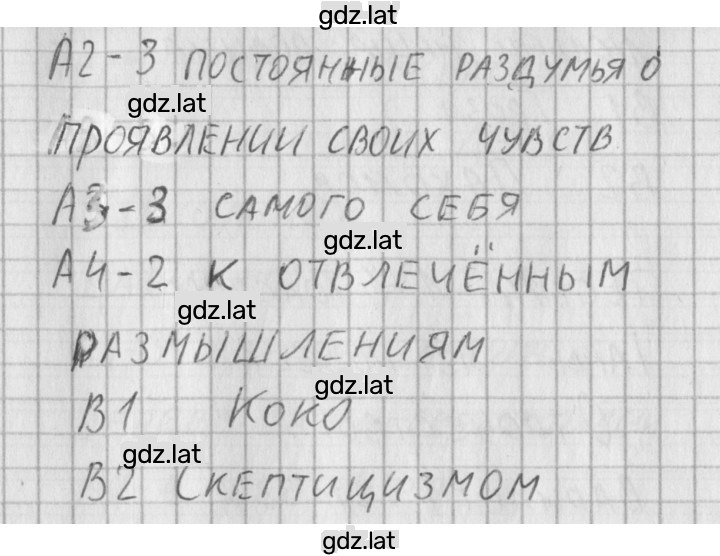 gdz.lat
А2-3 ПОСТОЯННЫЕ РАЗДУМЬЯ О
gdz.lat
ПРОЯВЛЕНИИ СВОИХ ЧУВСТВ
А3-3 САМОГО СЕБЯ
gdz.lat
А4-2 К ОТВЛЕЧЁННЫМ
gdz.lat
РАЗМЫШЛЕНИЯМ
gdz.lat
В1 КОКО
gdz.lat
В2 СКЕПТИЦИЗМОМ
gdz.lat